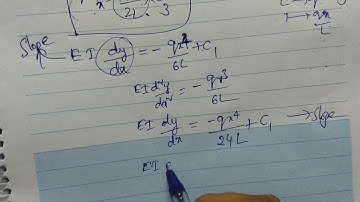 x 2L 3
L → qx/L
Slope EI dy/dx = - qx⁴/6L + C₁
EI d²y/dx² = - qx³/6L
EI dy/dx = -qx⁴/24L + C₁ → Slope
EI